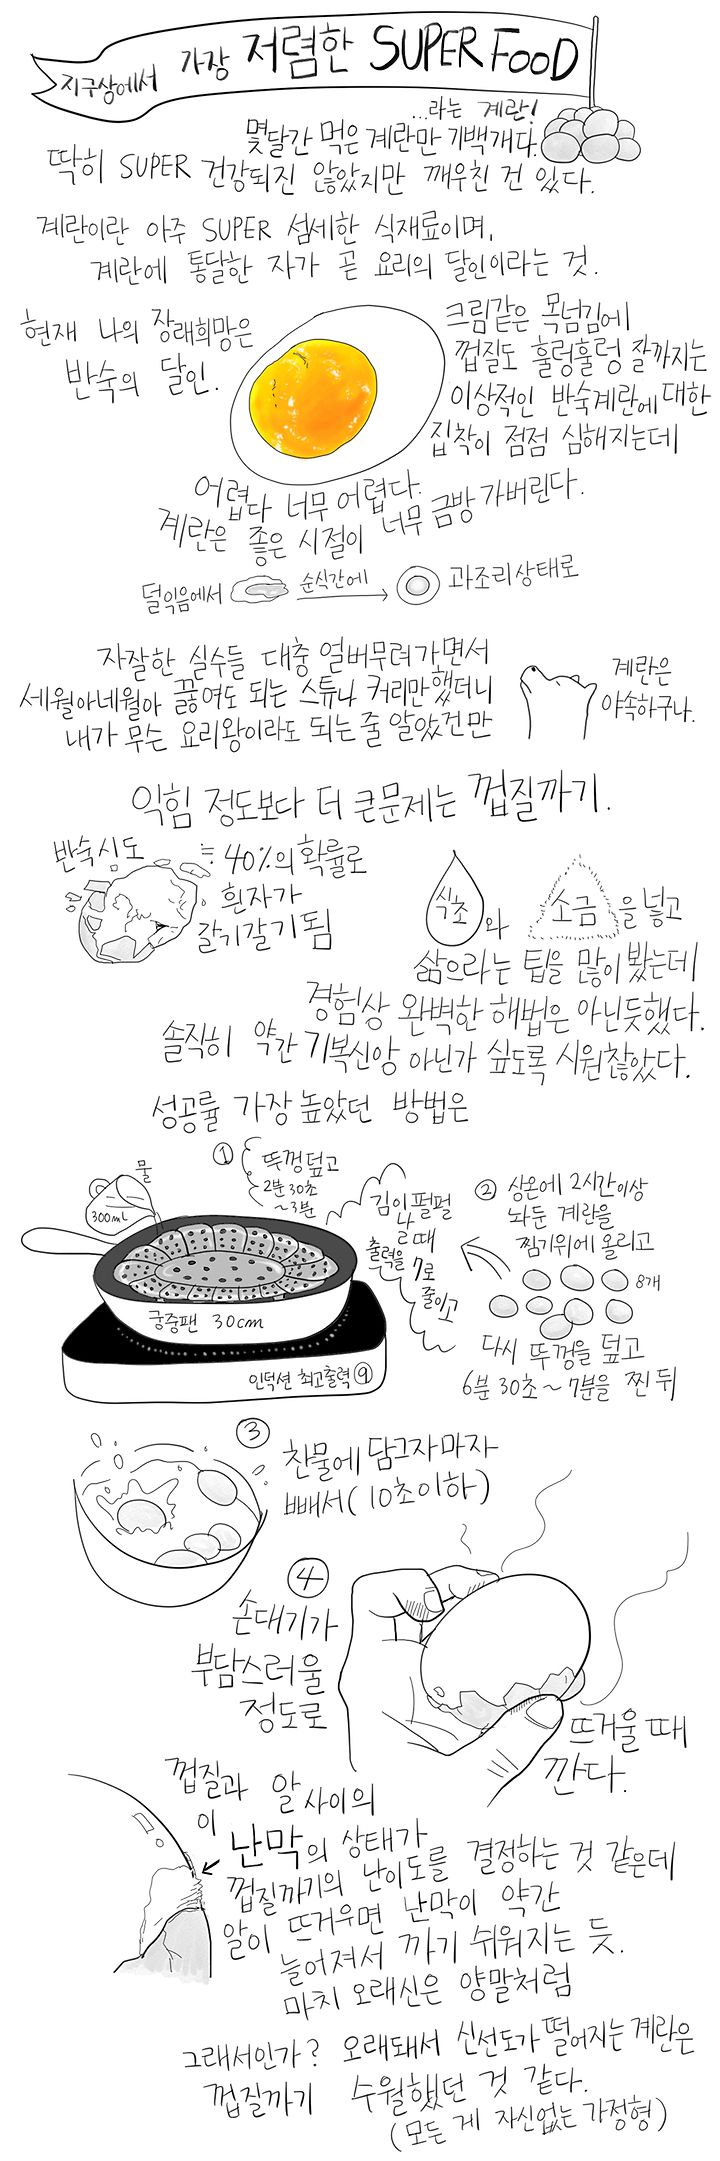 지구상에서 가장 저렴한 SUPER FOOD
...라는 계란!
몇달간 먹은 계란만 기백개다.
딱히 SUPER 건강되진 않았지만 깨우친 건 있다.
계란이란 아주 SUPER 섬세한 식재료이며,
계란에 통달한 자가 곧 요리의 달인이라는 것.
현재 나의 장래희망은
반숙의 달인.
크림같은 목넘김에
껍질도 훌렁훌렁 잘까지는
이상적인 반숙계란에 대한
집착이 점점 심해지는데
어렵다 너무 어렵다.
계란은 좋은 시절이 너무 금방 가버린다.
덜익음에서 순식간에 과조리상태로
자잘한 실수들 대충 얼버무려가면서
세월아네월아 끓여도 되는 스튜나 커리만했더니
내가 무슨 요리왕이라도 되는 줄 알았건만
계란은
야속하구나.
익힘 정도보다 더 큰문제는 껍질까기.
반숙시도
40%의 확률로
흰자가
갈기갈기됨
식초와 소금을 넣고
삶으라는 팁을 많이 봤는데
경험상 완벽한 해법은 아닌듯했다.
솔직히 약간 기복신앙 아닌가 싶도록 시원찮았다.
성공률 가장 높았던 방법은
물
300mL
궁중팬 30cm
인덕션 최고출력 ⑨
① 뚜껑덮고
2분 30초
~3분
김이 펄펄
날 때
출력을 7로
줄이고
② 상온에 2시간이상
놔둔 계란을
찜기위에 올리고
8개
다시 뚜껑을 덮고
6분 30초~7분을 찐 뒤
③ 찬물에 담그자마자
빼서 (10초이하)
④
손대기가
부담스러울
정도로
뜨거울 때
깐다.
껍질과 알 사이의
이 난막의 상태가
껍질까기의 난이도를 결정하는 것 같은데
알이 뜨거우면 난막이 약간
늘어져서 까기 쉬워지는 듯.
마치 오래신은 양말처럼
그래서인가? 오래돼서 신선도가 떨어지는 계란은
껍질까기 수월했던 것 같다.
(모든 게 자신없는 가정형)